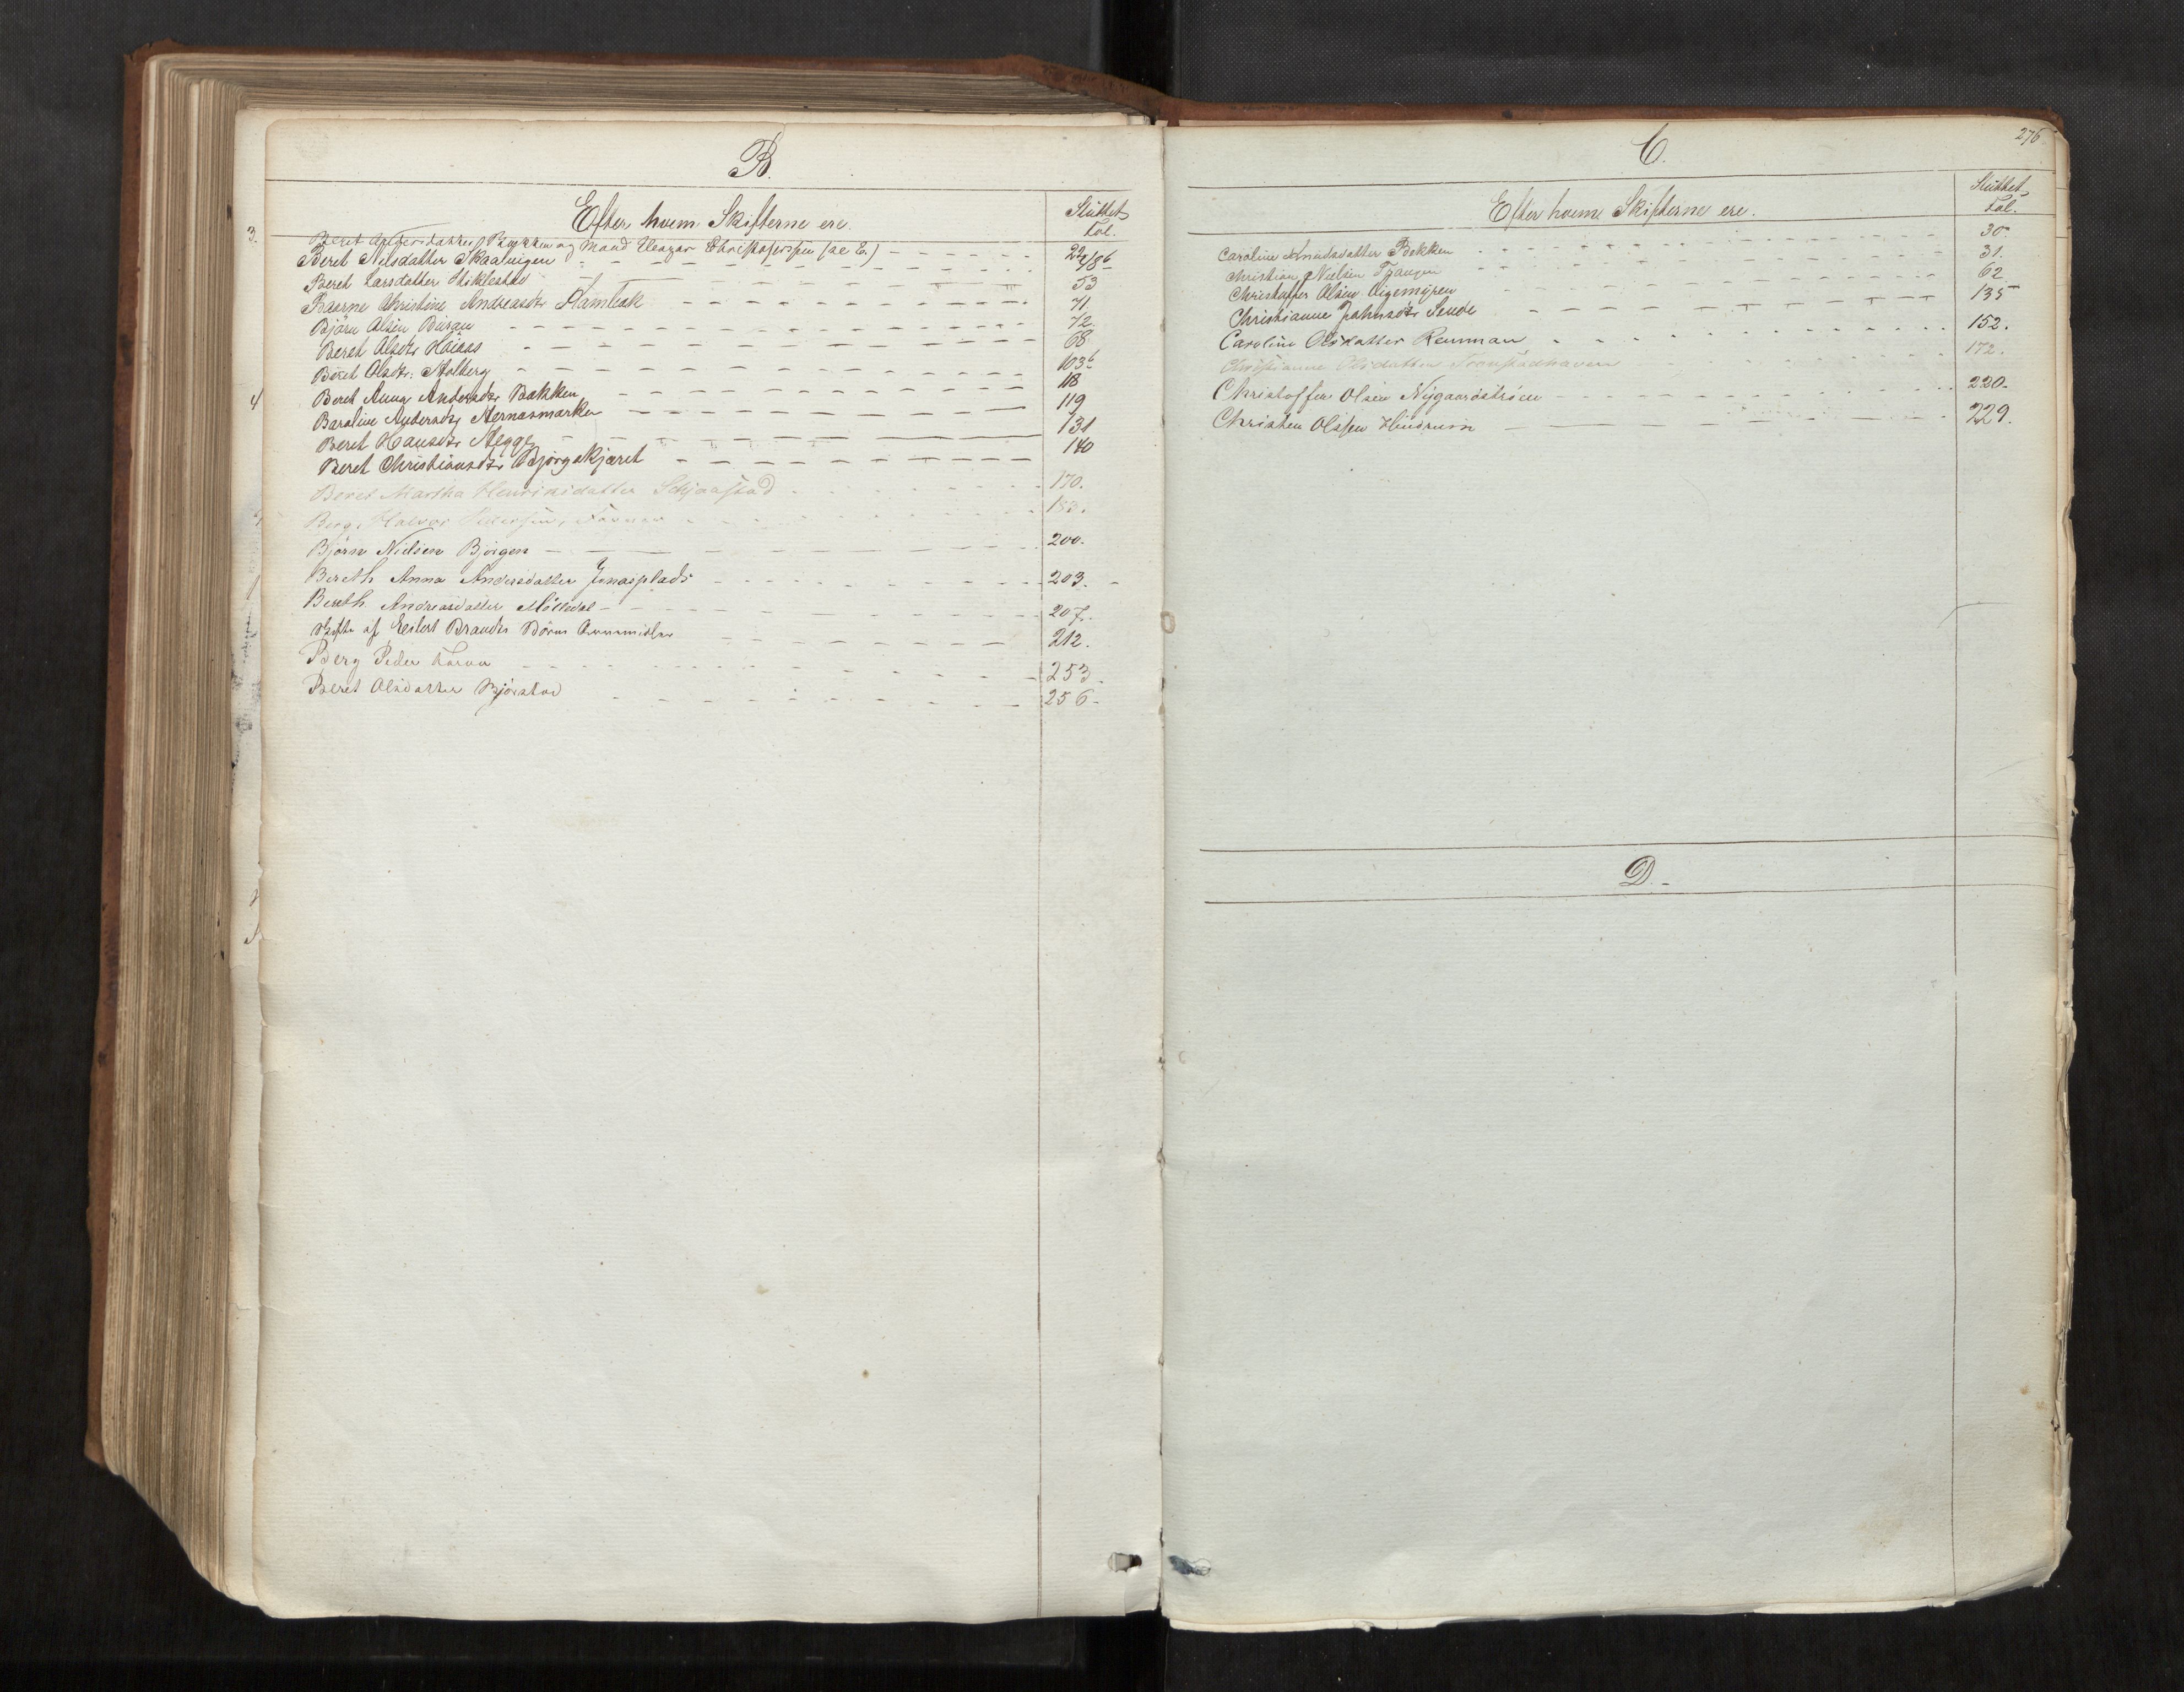 B.
Efter hvem Skifterne ere.
Sluttet
Fol.
Beret og Mand Eleazar Christophersen (se E.)
Beret Nilsdatter Skaanigen
Beret Larsdatter Stiklestad 53
Baarne Christine Andreasdtr Kambak 71.
Björn Olsen Buran 72.
Beret Olsdtr Haieas 68
Beret Olsdtr. Molberg 103b
Beret Anna Andersdtr Bakken 118
Baroline Andersdtr Hernasmarken 119
Beret Hansdtr Hegge 131
Beret Christiansdtr Bjørgskjæret 140
Beret Martha Henriksdatter Schjaastad 170.
Berg, Halvor Pedersen, 183.
Björn Nielsen Bjørgen 200.
Bereth Anna Andersdatter Jonasplads 203.
Bereth Andreasdatter Mölledal 207.
af Eilert Brandts Börns 212.
Berg Peder 253.
Beret Olsdatter Bjørstad 256-
276
C.
Efter hvem Skifterne ere.
Sluttet
Fol.
Caroline Knudsdatter Bakken 30.
Christian Nielsen Tjangen 31.
Christoffer Olsen Aigemyren 62
Christianne Johnsdtr Sende 135
Caroline Olsdatter Renman 152.
Christianne Olsdatter Tronstadhaven 172.
Christoffer Olsen Nygaardström 220.
Christen Olsen Hindrum 229.
D.